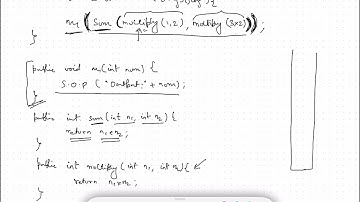 m(sum(multiply(1,2), multiply(3×2)));
}
public void m(int num) {
S.O.P ("Output:" + num);
}
public int sum(int n1, int n2) {
return n1+n2;
}
public int multiply(int n1, int n2) {
return n1×n2;
}